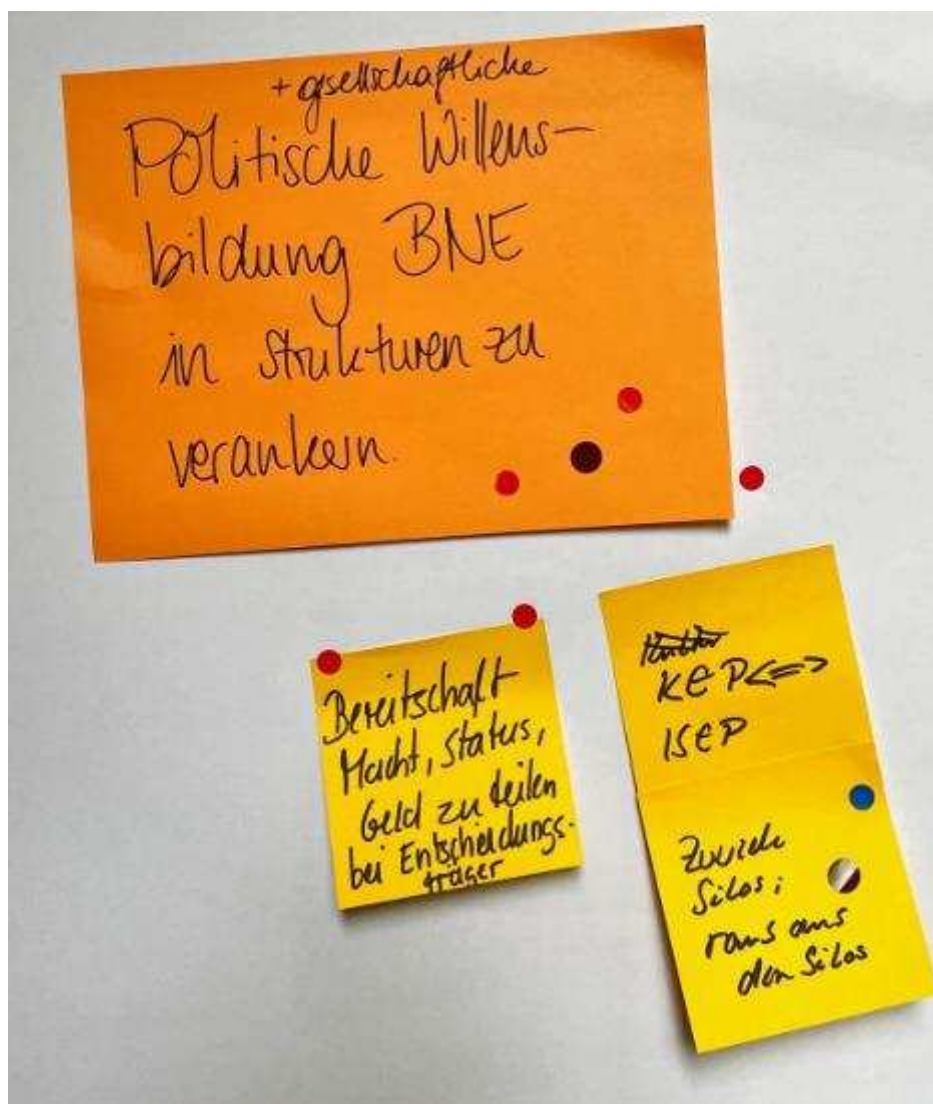 + gesellschaftliche
Politische Willens-
bildung BNE
in Strukturen zu
verankern.
Bereitschaft
Macht, Status,
Geld zu teilen
bei Entscheidungs-
träger
KEP <=>
ISEP
Silos;
raus aus
den Silos